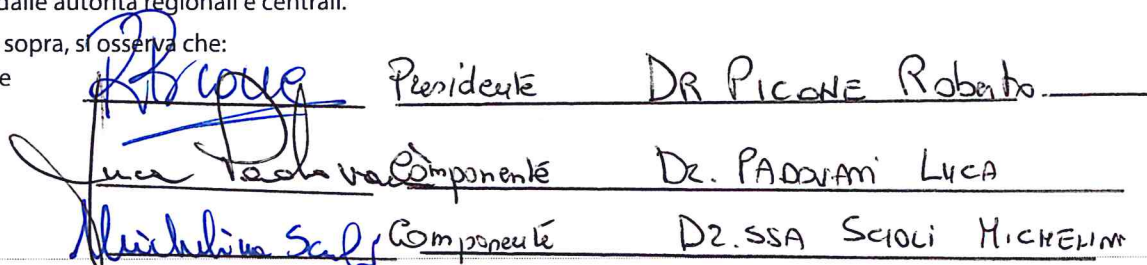 dalle autorità regionali e centrali.
sopra, si osserva che:
e
RPicone Presidente DR PICONE Roberto
Luca Padovani Componente Dr. PADOVANI LUCA
Michelina Componente Dr.SSA SCIOLI MICHELINA